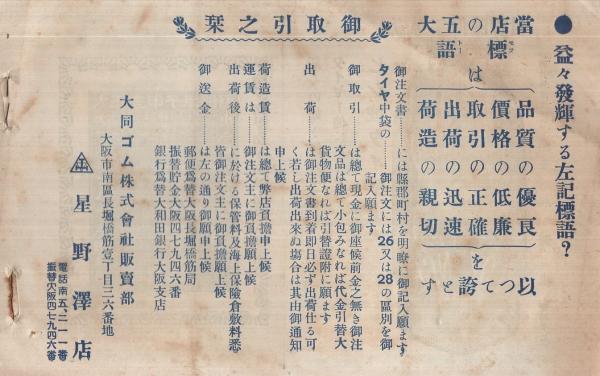 ●益々發輝する左記標語？
當店の五大
標語は
モツトー
品質の優良
價格の低廉
取引の正確
出荷の迅速
荷造の親切
を
以つて誇とす
御取引之栞
御注文書……には縣郡町村を明瞭に御記入願ます
タイヤ中袋の……御注文には26又は28の區別を御
記入願ます
御取引……は總て現金に御座候前金之無き御注
文品は總て小包みなれば代金引替大
貨物便なれば引替證附に願ます
出荷……は御注文書到着即日必ず出荷仕る可
く若し出荷出來ぬ場合は其由御通知
申上候
荷造賃……は總て弊店負擔申上候
運賃は……御注文主に御負擔願上候
出荷後……に於ける保管料及海上保險倉敷料悉
皆御注文主に御負擔願上候
御送金……は左の通り御願申上候
郵便爲替大阪長堀橋筋局
振替貯金大阪四七九四六番
銀行爲替大和田銀行大阪支店
大同ゴム株式會社販賣部
大阪市南區長堀橋筋壹丁目三六番地
星野澤店
電話南五、二一一番
振替大阪四七九四六番